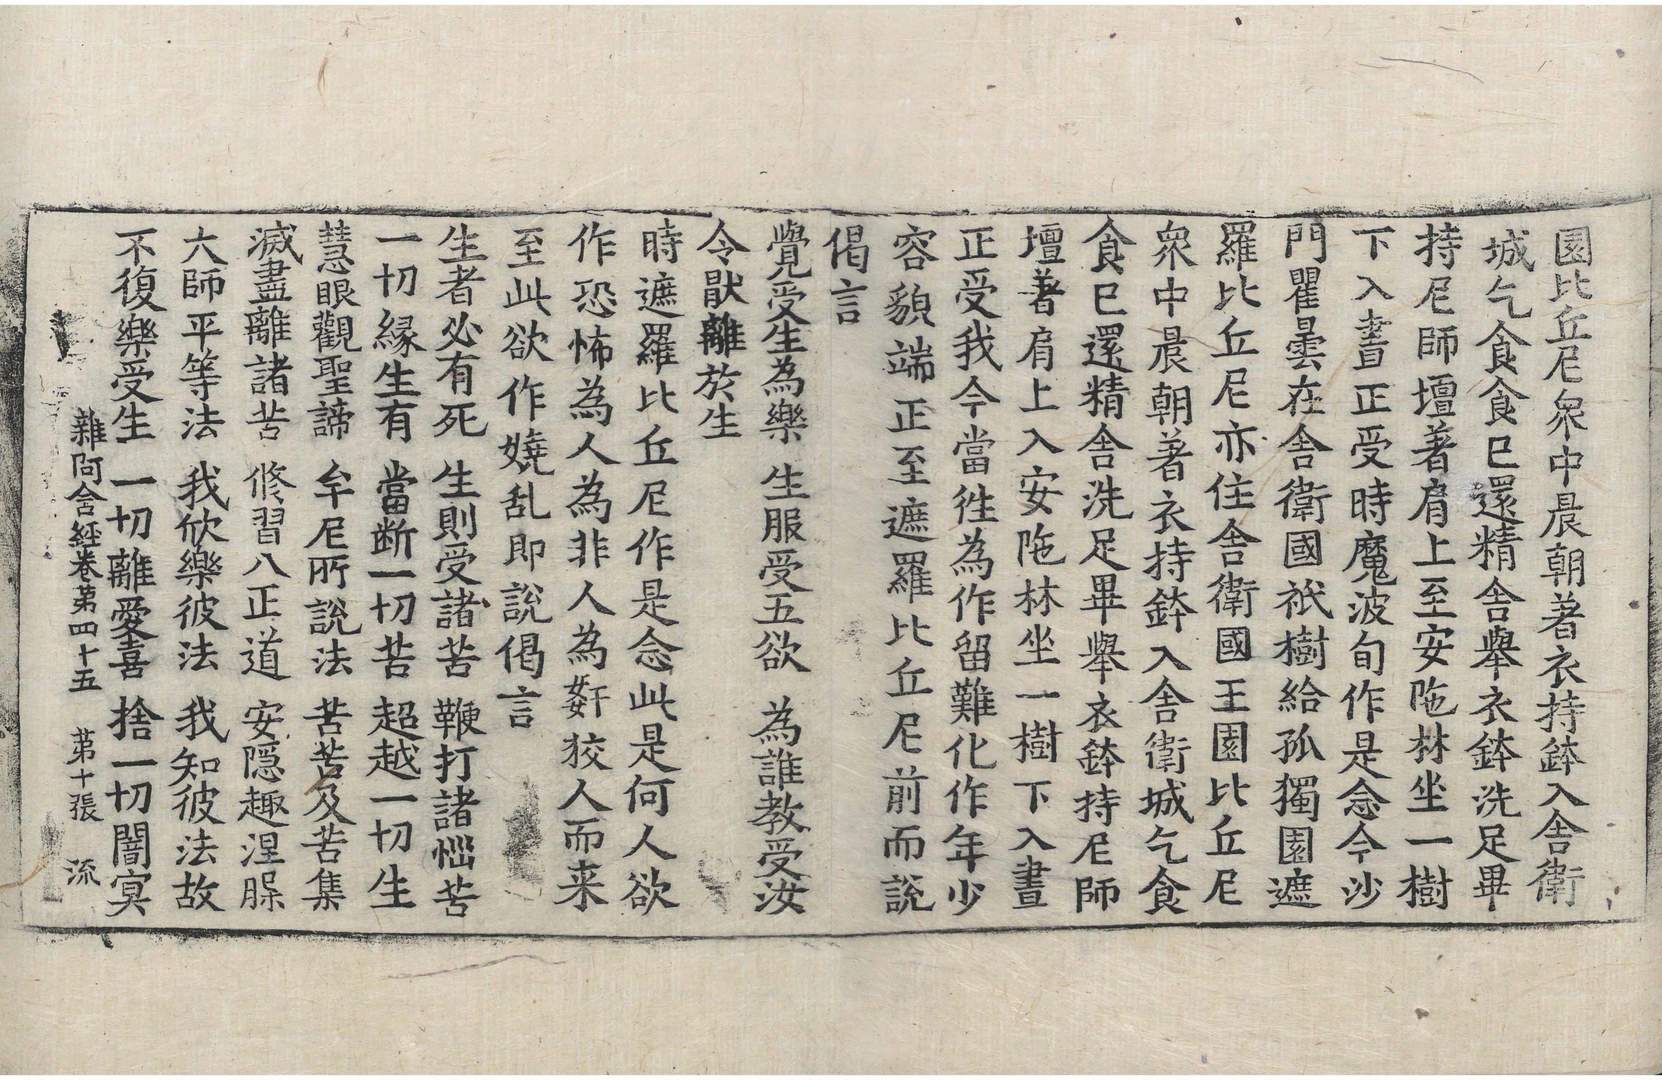 園比丘尼衆中晨朝著衣持鉢入舍衛
城乞食食已還精舍舉衣鉢洗足畢
持尼師壇著肩上至安陁林坐一樹
下入晝正受時魔波旬作是念今沙
門瞿曇在舍衛國祇樹給孤獨園遮
羅比丘尼亦住舍衛國王園比丘尼
衆中晨朝著衣持鉢入舍衛城乞食
食已還精舍洗足畢舉衣鉢持尼師
壇著肩上入安陁林坐一樹下入晝
正受我今當往為作留難化作年少
容貌端正至遮羅比丘尼前而說
偈言
覺受生為樂 生服受五欲 為誰教受汝
令猒離於生
時遮羅比丘尼作是念此是何人欲
作恐怖為人為非人為姧狡人而来
至此欲作嬈乱即說偈言
生者必有死 生則受諸苦 鞭打諸惱苦
一切緣生有 當断一切苦 超越一切生
慧眼觀聖諦 牟尼所說法 苦苦及苦集
滅盡離諸苦 脩習八正道 安隱趣涅槃
大師平等法 我欣樂彼法 我知彼法故
不復樂受生 一切離愛喜 捨一切闇冥
雜阿含經卷第四十五 第十張 流